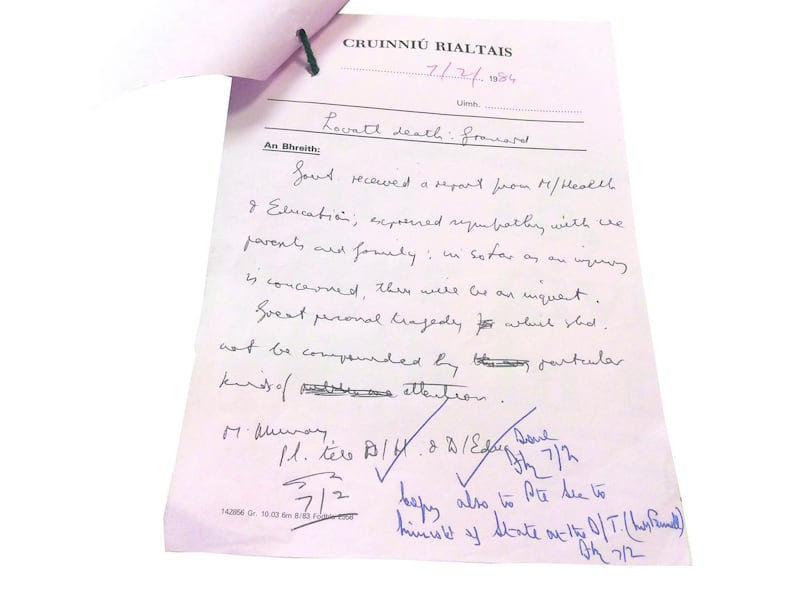 CRUINNIÚ RIALTAIS
7/2/ 1984
Uimh.
Lovatt death: Granard
An Bhreith:
Govt. received a report from M/Health
& Education; expressed sympathy with the
parents and family; in so far as an inquiry
is concerned, there will be an inquest.
Great personal tragedy which shd.
not be compounded by particular
kinds of attention.
M. Murray
Pl. tell D/H. & D/Educ
7/2
Done
7/2
Copy also to Pte Sec to
Minister of State at the D/T. (Mrs Fennell)
7/2
142856 Gr. 10.03 6m 8/83 Fodhla E958